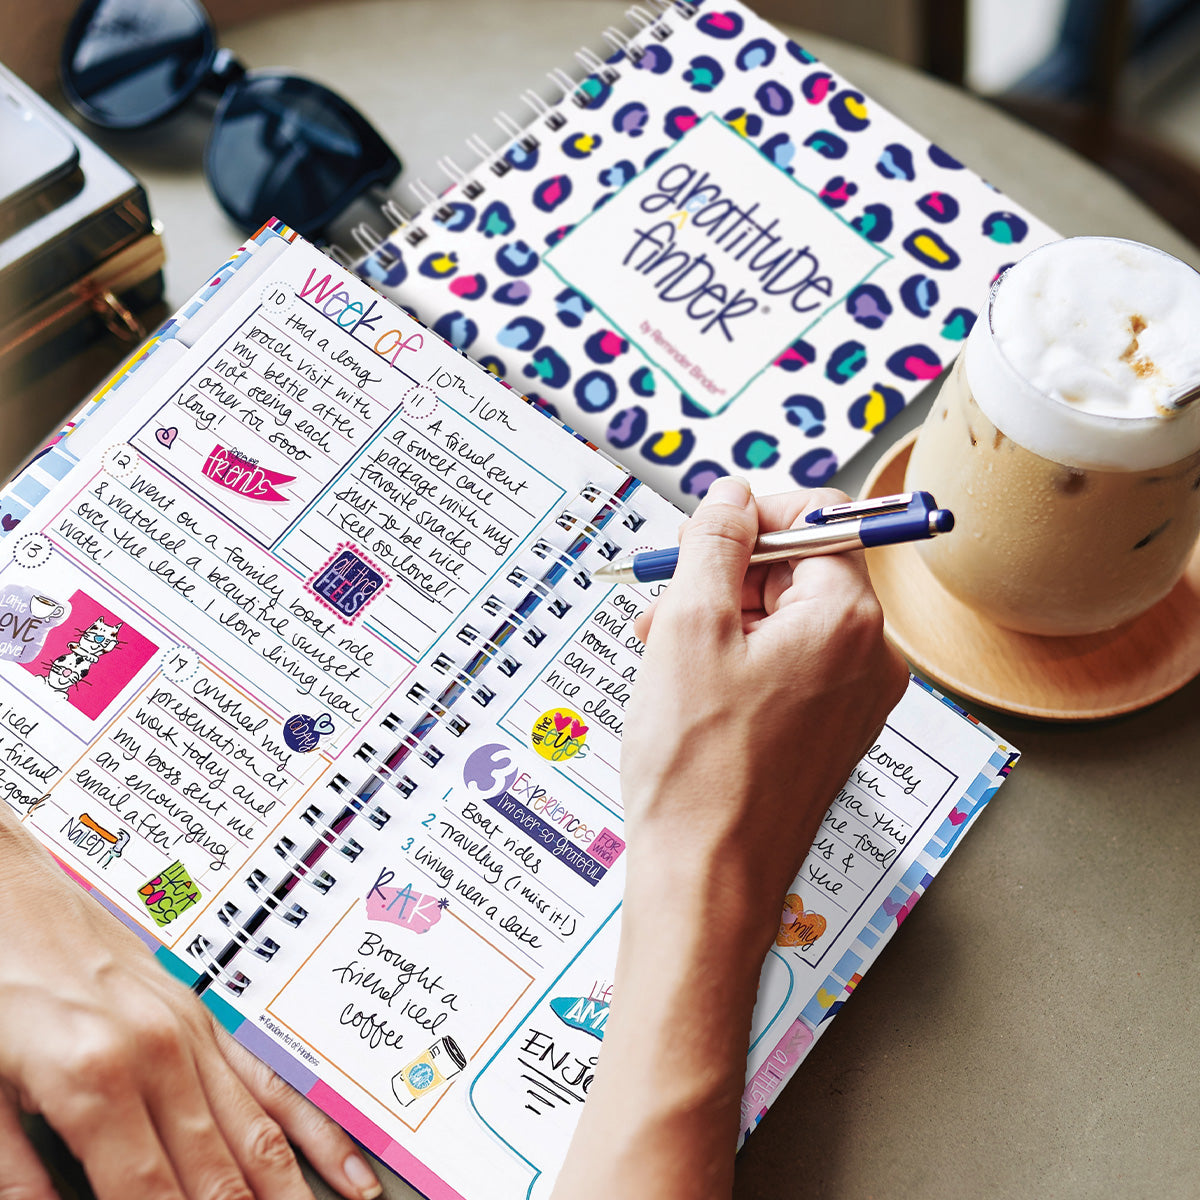 gratitude
e
finder®
by Reminder Binder®
Week of
10th-16th
10
Had a long
porch visit with
my bestie after
not seeing each
other for sooo
long!
friends
11
A friend sent
a sweet care
package with my
favorite snacks
just to be nice.
I feel so loved!
all the
FEELS
12
Went on a family boat ride
& watched a beautiful sunset
over the lake. I love living near
water!
13
Latte
LOVE
give!
iced
friend
good
14
Crushed my
presentation at
work today and
my boss sent me
an encouraging
email after!
NAILED it
LIKE A
BOSS
and
room
can rela
nice clean
all the
eyes
3 Experiences
I'm ever-so-grateful
FOR which
1. Boat rides
2. Traveling (I miss it!)
3. Living near a lake
R.A.K*
Brought a
friend iced
coffee
*Random Act of Kindness
AM
ENJO
lovely
this
food
&
the
mily
a little